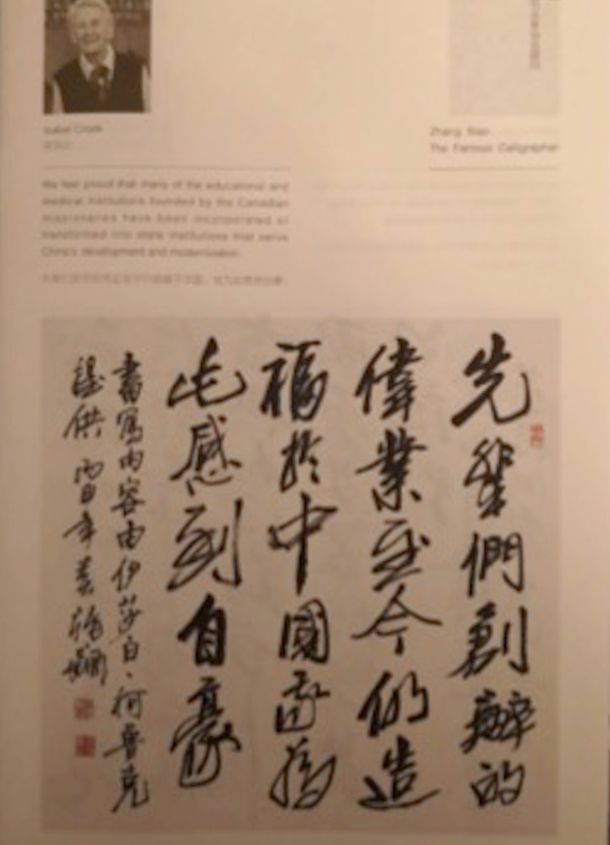 Isabel Crook
Zhang Biao
The Famous Caligrapher
We feel proud that many of the educational and
medical institutions founded by the Canadian
missionaries have been incorporated or
transformed into state institutions that serve
China's development and modernization.
先輩們創辦的
偉業至今仍造
福於中國我為
此感到自豪
書寫內容由伊莎白·柯魯克
提供